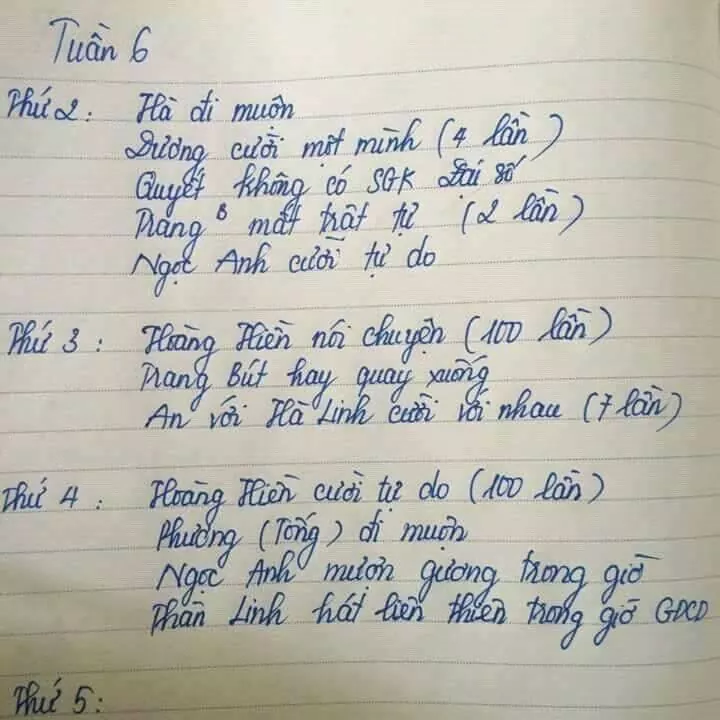 Tuần 6
Thứ 2: Hà đi muộn
Dương cười một mình (4 lần)
Quyết không có SGK Đại số
Trang B mất trật tự (2 lần)
Ngọc Anh cười tự do
Thứ 3: Hoàng Hiền nói chuyện (100 lần)
Trang Bút hay quay xuống
An với Hà Linh cười với nhau (7 lần)
Thứ 4: Hoàng Hiền cười tự do (100 lần)
Phương (Tống) đi muộn
Ngọc Anh mượn gương trong giờ
Phan Linh hát liên thiên trong giờ GDCD
Thứ 5: